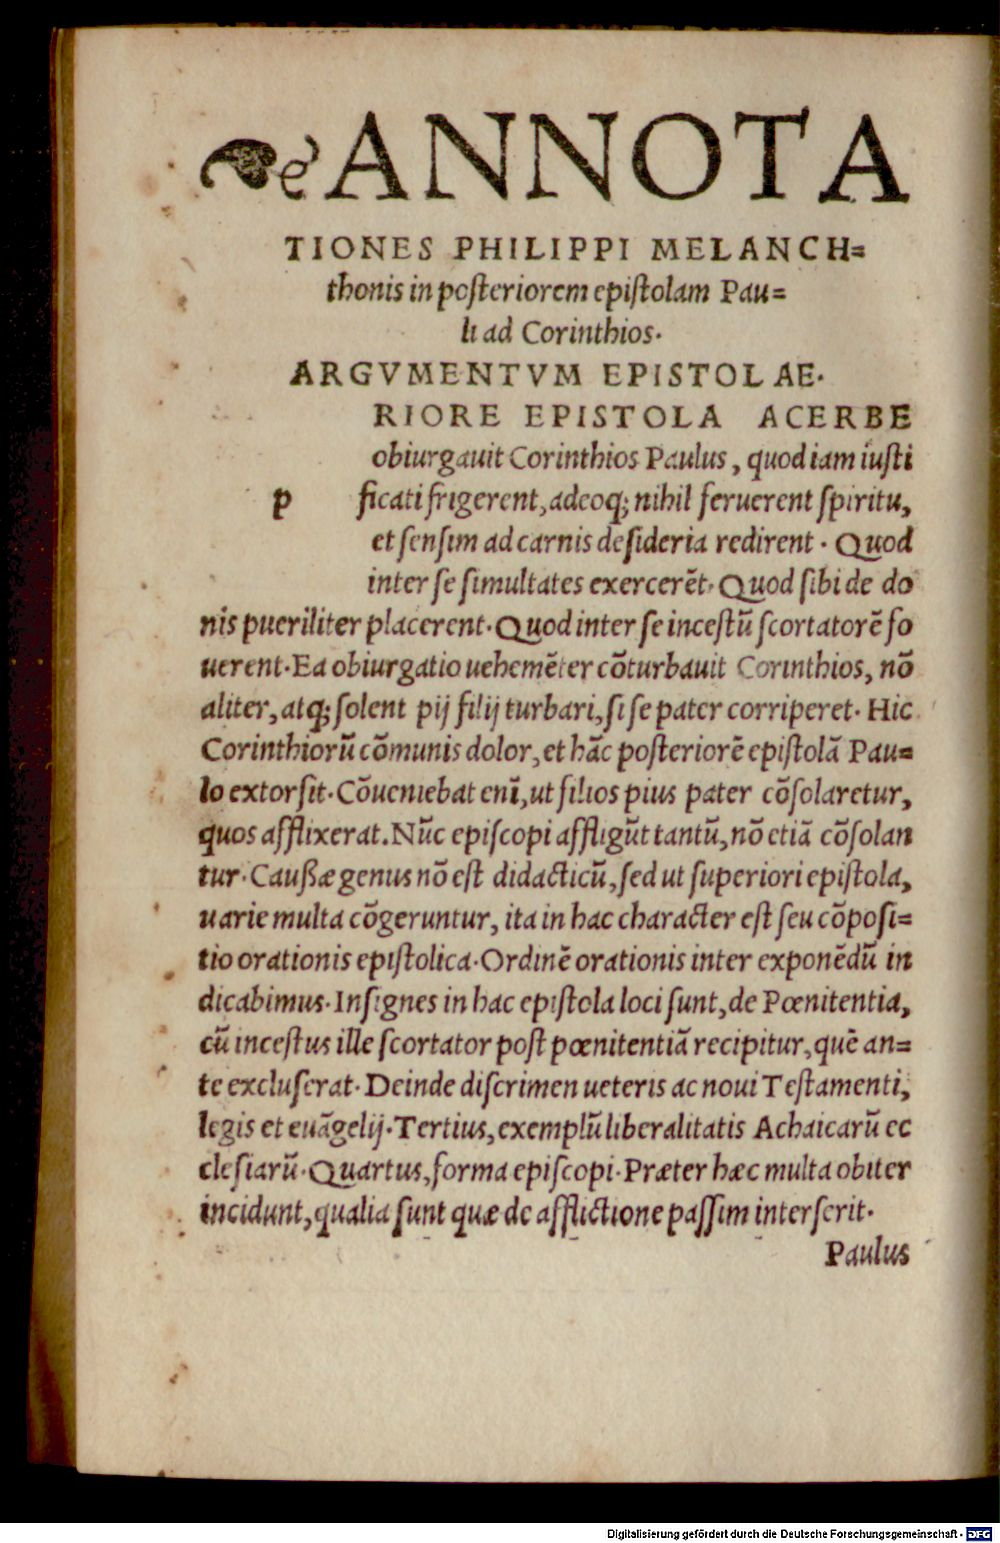 ANNOTA
TIONES PHILIPPI MELANCH=
thonis in posteriorem epistolam Pau=
li ad Corinthios.
ARGVMENTVM EPISTOLAE.
RIORE EPISTOLA ACERBE
obiurgauit Corinthios Paulus, quod iam iusti
p ficati frigerent, adeoq; nihil feruerent spiritu,
et sensim ad carnis desideria redirent. Quod
inter se simultates exercerēt. Quod sibi de do
nis pueriliter placerent. Quod inter se incestū scortatorē fo
uerent. Ea obiurgatio uehemēter cōturbauit Corinthios, nō
aliter, atq; solent pij filij turbari, si se pater corriperet. Hic
Corinthiorū cōmunis dolor, et hāc posteriorē epistolā Pau=
lo extorsit. Cōueniebat enī, ut filios pius pater cōsolaretur,
quos afflixerat. Nūc episcopi affligūt tantū, nō etiā cōsolan
tur. Caußæ genus nō est didacticū, sed ut superiori epistola,
uarie multa cōgeruntur, ita in hac character est seu cōposi=
tio orationis epistolica. Ordinē orationis inter exponēdū in
dicabimus. Insignes in hac epistola loci sunt, de Pœnitentia,
cū incestus ille scortator post pœnitentiā recipitur, quē an=
te excluserat. Deinde discrimen ueteris ac noui Testamenti,
legis et euāgelij. Tertius, exemplū liberalitatis Achaicarū ec
clesiarū. Quartus, forma episcopi. Præter hæc multa obiter
incidunt, qualia sunt quæ de afflictione passim interserit.
Paulus
Digitalisierung gefördert durch die Deutsche Forschungsgemeinschaft - DFG